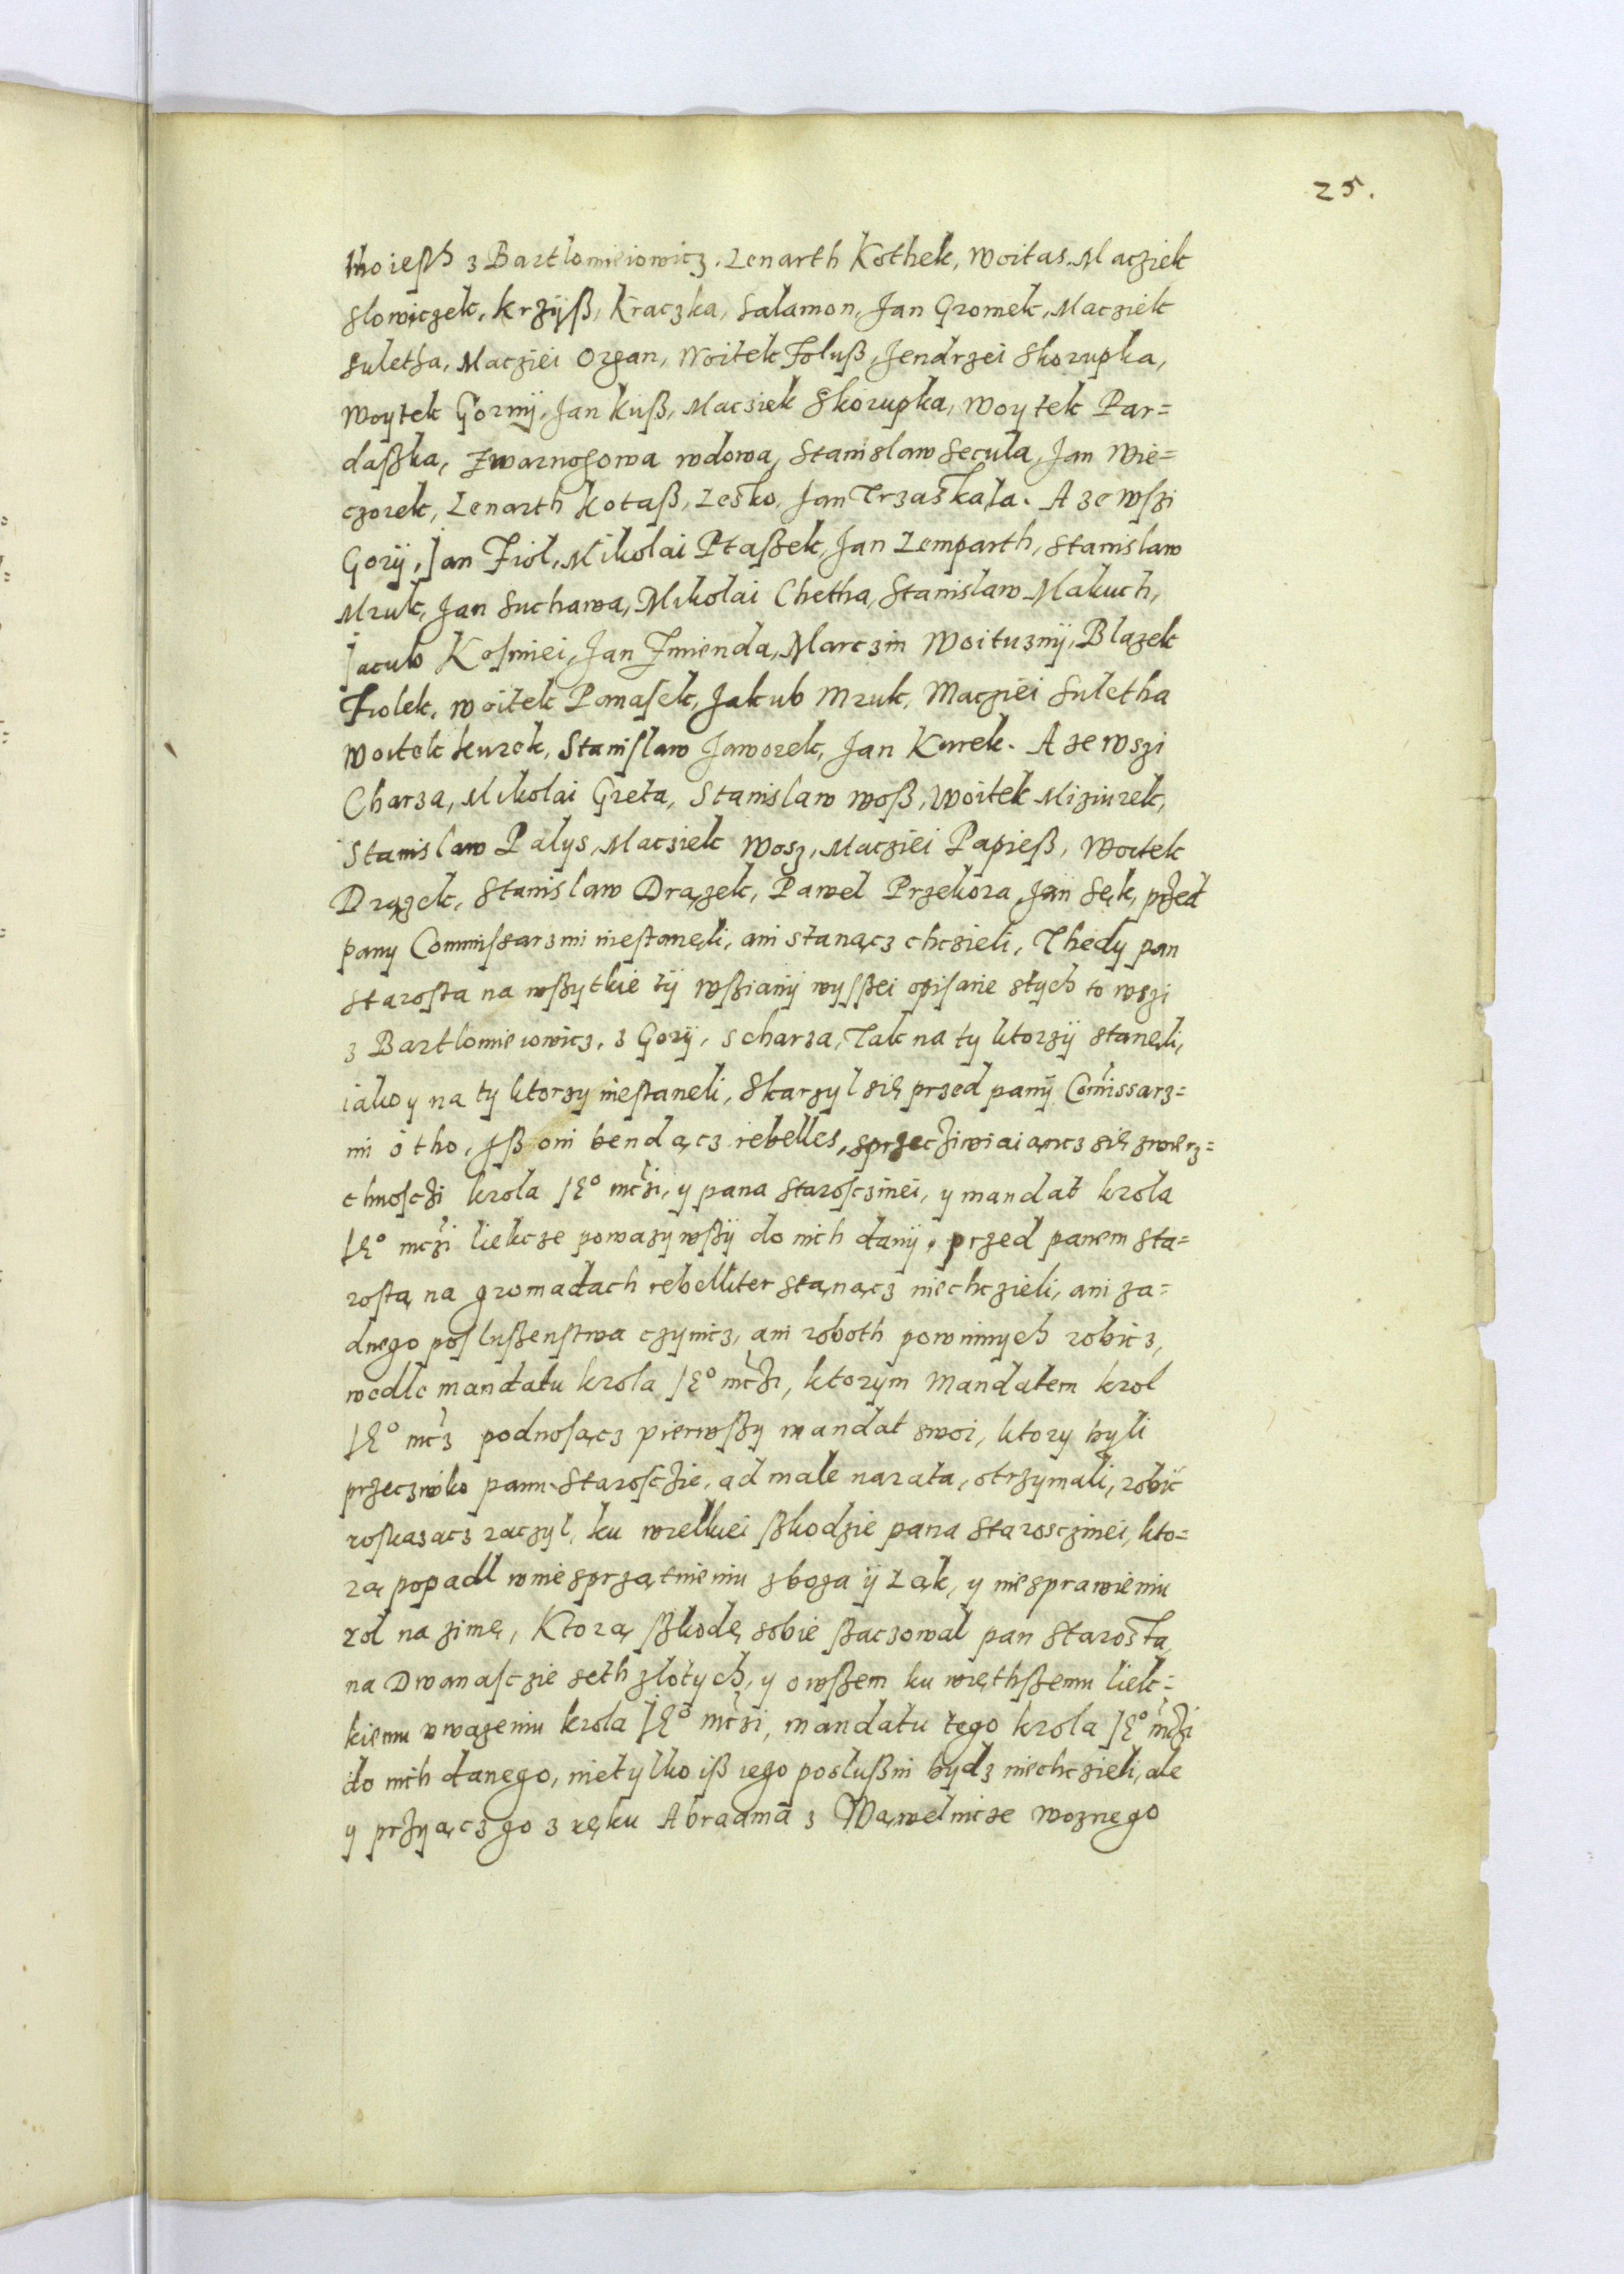 25.
Bartlomieiowicz. Lenarth Kothek, Woitas, Macziek
Slowiczek, Krzÿß, Kraczka, Salamon, Jan Gromek, Macziek
Suletha, Macziei Organ, Woitek Foluß, Jendrzei Skorupka,
Woytek Gornÿ, Jan Kuß, Macziek Skorupka, Woytek Par=
daßka, Zwarnogowa wdowa, Stanislaw Secula, Jan Wie=
czorek, Lenarth Kotaß, Lesko, Jan Trzaskala. A ze wszi
Gorÿ, Jan Fiol, Mikolai Ptaßek, Jan Lemparth, Stanislaw
Mruk, Jan Suchawa, Mikolai Chetha, Stanislaw Makuch,
Jacub Kosmiei, Jan Zmienda, Marczin Woituznÿ, Blazek
Fiolek, Woitek Ponasek, Jakub Mruk, Macziei Suletha
Woitek Kurek, Stanislaw Jaworek, Jan Kurek. A ze wszi
Charza, Mikolai Greta, Stanislaw Woß, Woitek Miziurek,
Stanislaw Palys, Macziek Wosz, Macziei Papieß, Woitek
Drązek, Stanislaw Drązek, Pawel Przekora, Jan Sęk, przed
pany Commissarzmi niestanęli, ani stanącz chczieli, Thedy pan
Starosta na wßytkie tÿ wßianÿ wyßßei opisane s tych to wszi
z Bartlomieiowicz, z Gorÿ, s charza, Tak na ty ktorzÿ stanęli,
iako y na ty ktorzy niestaneli, Skarzyl się przed panÿ Comissarz=
mi o tho, Jß oni bendącz rebelles, sprzecziwiaiąncz się zwierz=
chnosczi krola Je° mczi, y pana Starosczinei, y mandat krola
Je° mczi liekcze powazywßÿ do nich danÿ, przed panem Sta=
rostą na gromadach rebelliter stanącz niechczieli, ani za=
dnego poslußenstwa czynicz, ani roboth powinnych robicz,
wedle mandatu krola Je° mczi, ktorym Mandatem krol
Je° mcz podnosącz pierwßy mandat swoi, ktory byli
przecziwko panu Starosczie, ad male narata, otrzymali, robic
roskazacz raczyl, ku wielkiei ßkodzie pana Starosczinei, kto=
rą popadl w niesprzątnieniu zboza ÿ Łąk, y niesprawieniu
rol na zimę, Ktorą ßkodę sobie ßaczowal pan Starosta
na Dwanasczie seth zlotych, y owßem ku więthßemu liek=
kiemu uwazeniu krola Je° mczi, mandatu tego krola Je° mczi
do nich danego, nietylko iß iego poslußni bydz niechczieli, ale
y przyącz go z ręku Abraama z Wąwelnicze woznego